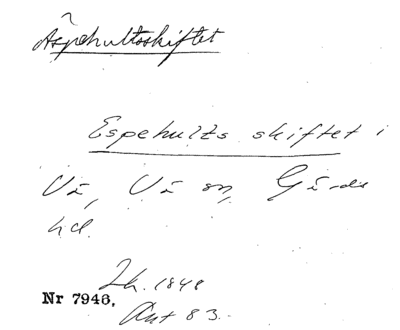 Äspehultsskiftet
Espehults skiftet i
Vä, Vä sn, Gärds
hd.
Lh. 1848
Nr 7946,
Akt 83.